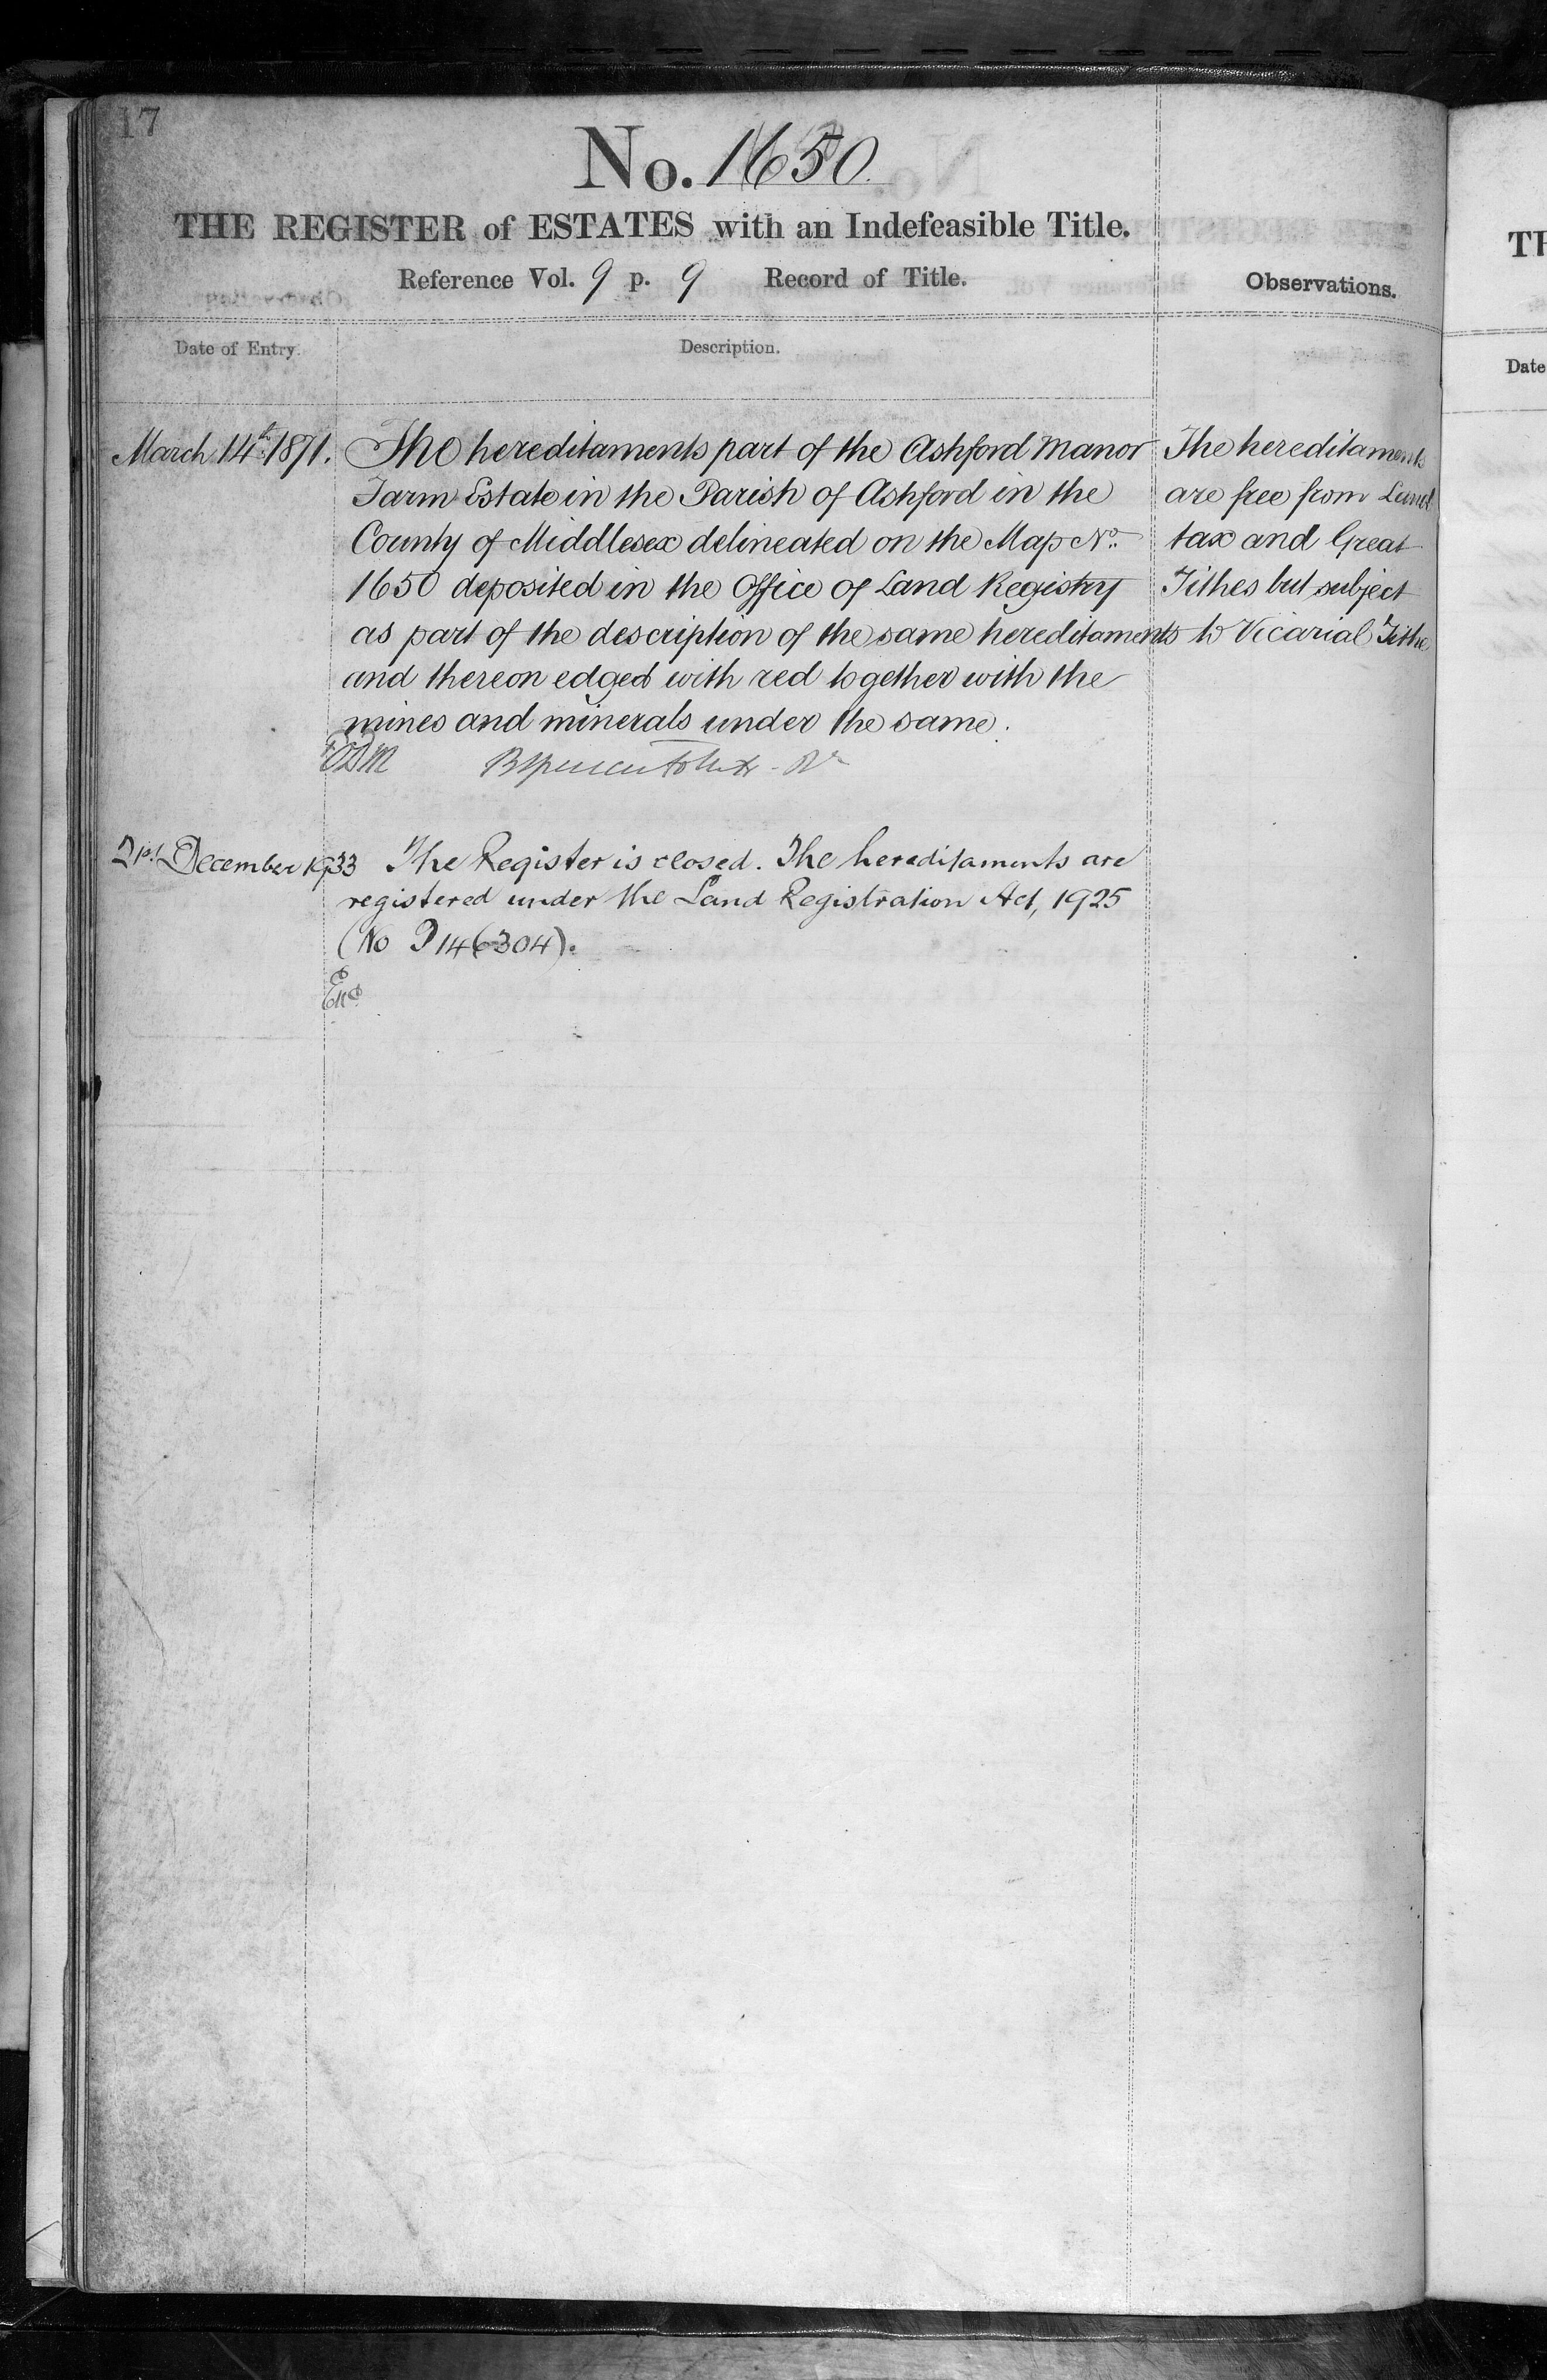 17
No. 1650.
THE REGISTER of ESTATES with an Indefeasible Title.
Reference Vol. 9 p. 9 Record of Title.
Observations.
Date of Entry.
Description.
March 14th 1871.
The hereditaments part of the Ashford Manor
Farm Estate in the Parish of Ashford in the
County of Middlesex delineated on the Map No.
1650 deposited in the Office of Land Registry
as part of the description of the same hereditaments
and thereon edged with red together with the
mines and minerals under the same.
The hereditaments
are free from Land
tax and Great
Tithes but subject
to Vicarial Tithe
21st December 1933
The Register is closed. The hereditaments are
registered under the Land Registration Act, 1925
(No P 146304).
TH
Date